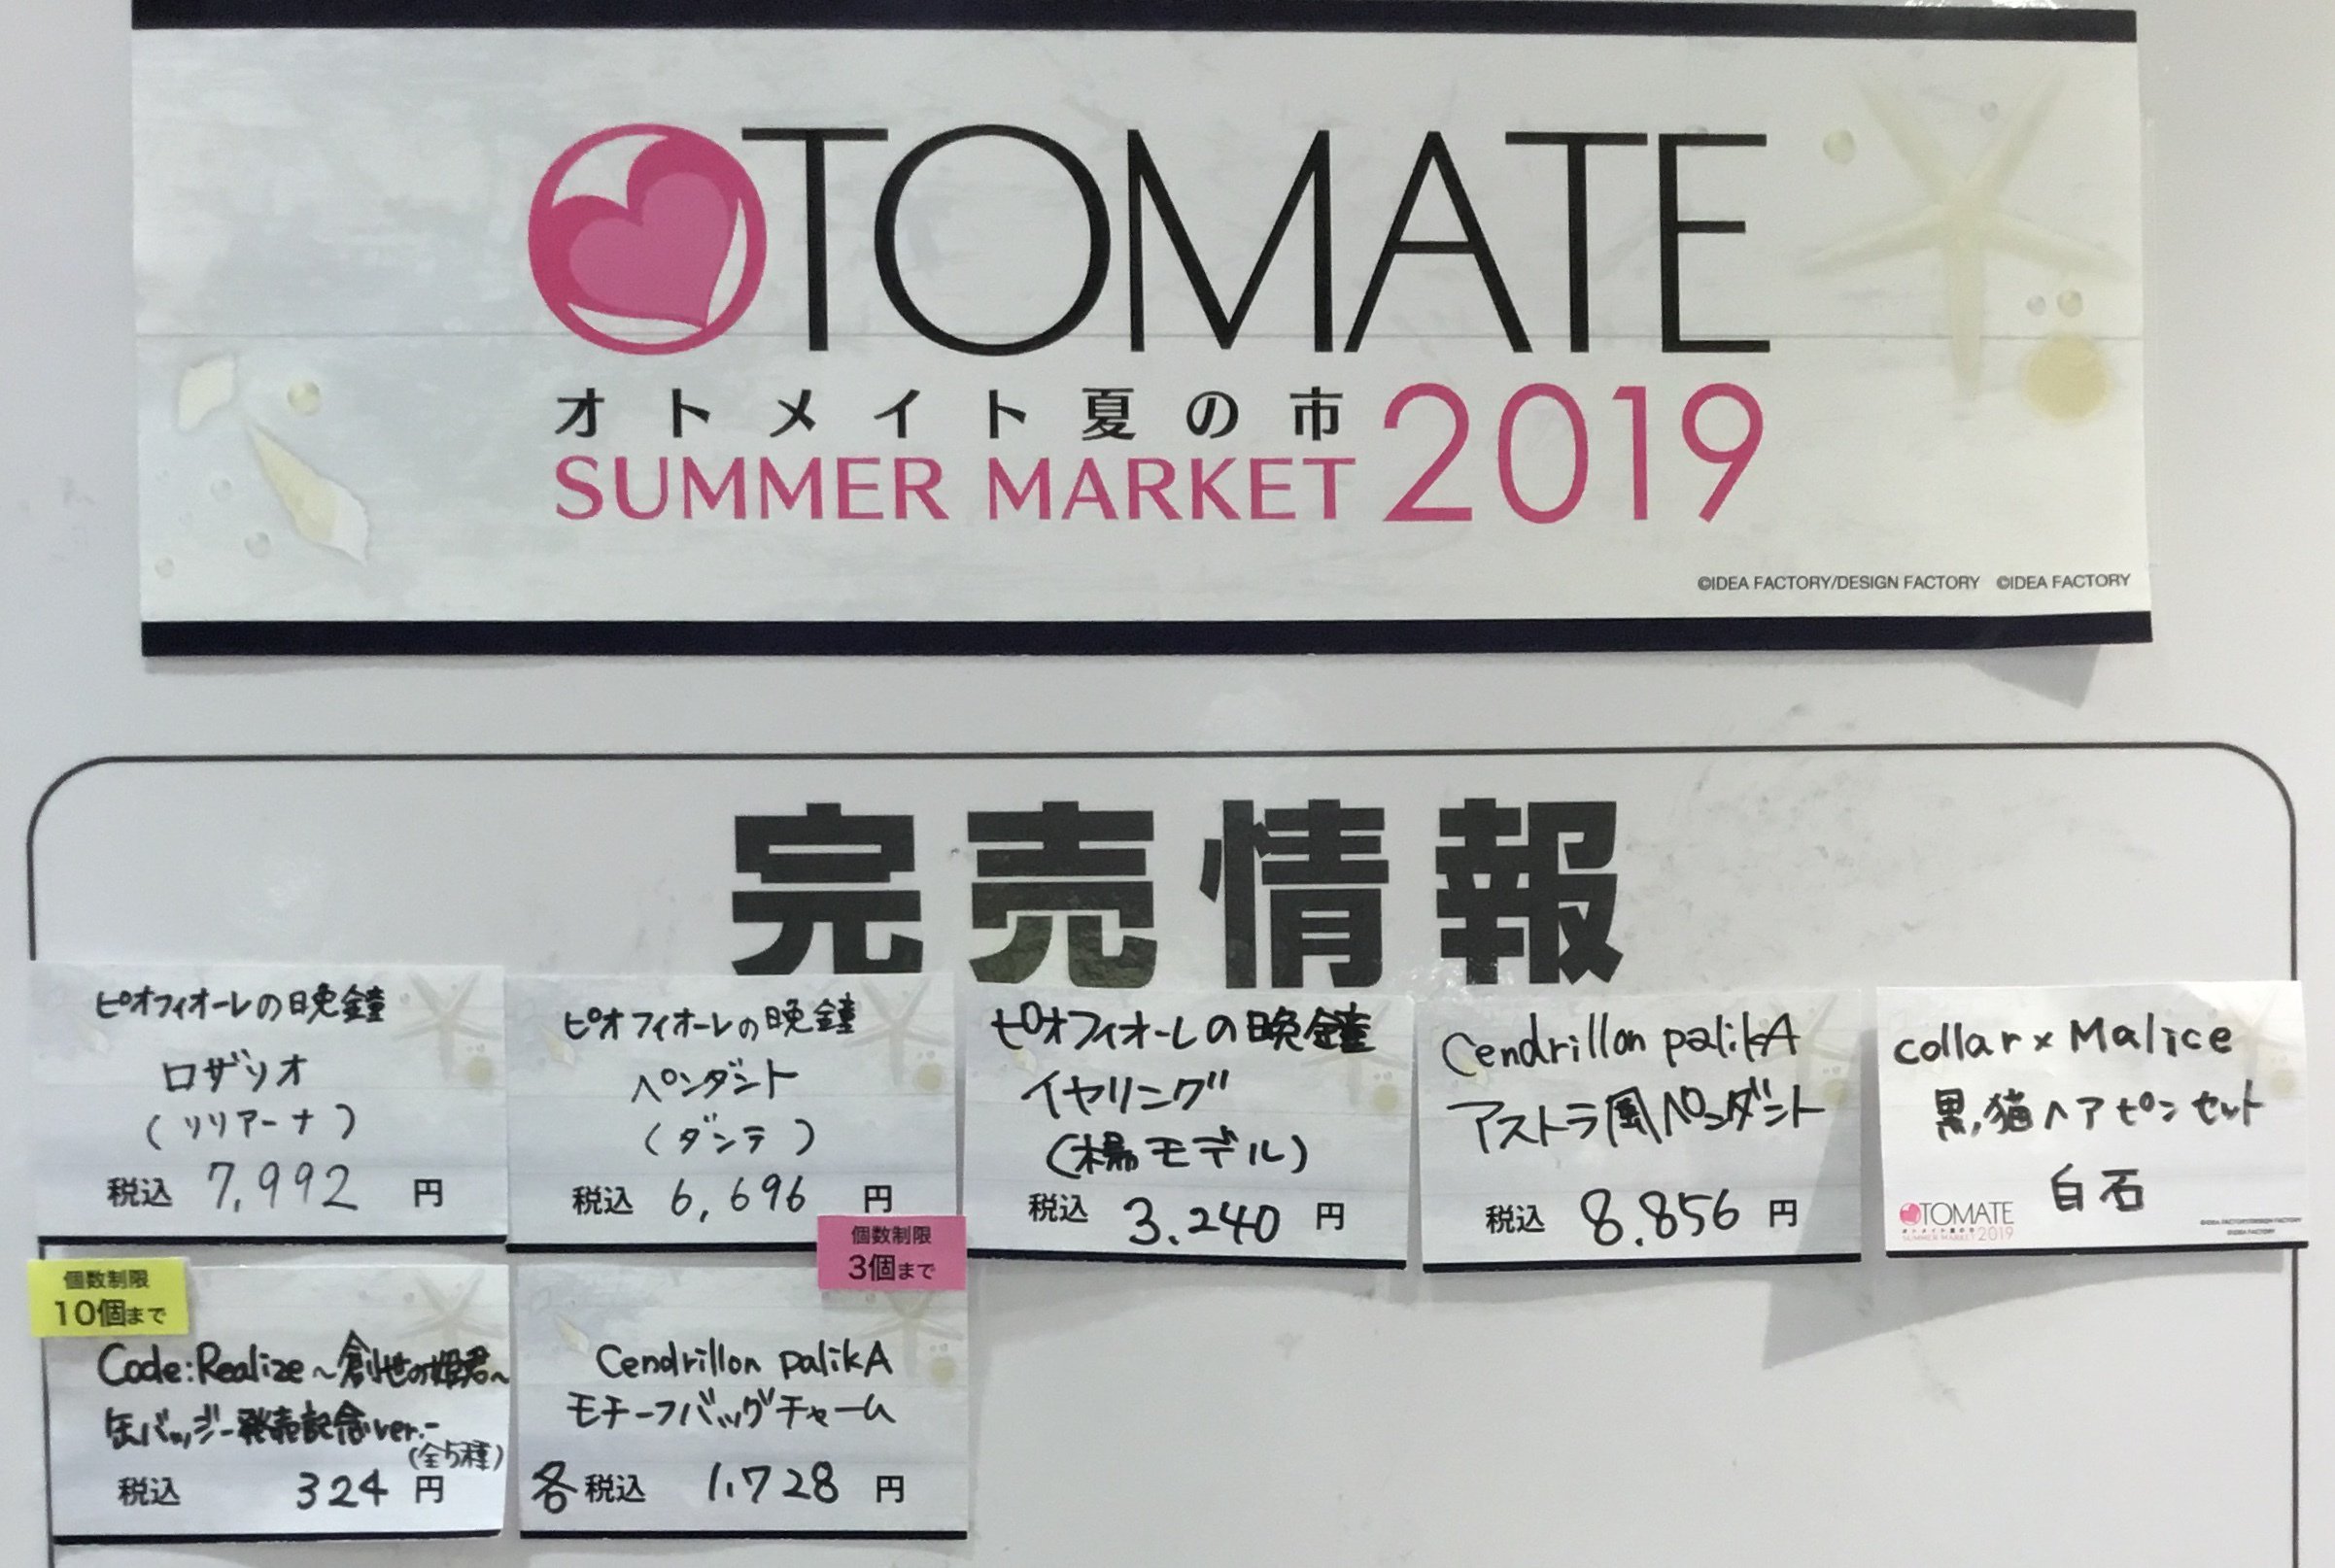 OTOMATE
オトメイト夏の市
SUMMER MARKET 2019
©IDEA FACTORY/DESIGN FACTORY ©IDEA FACTORY
完売情報
ピオフィオーレの晩鐘
ロザリオ
(リリアーナ)
税込 7,992 円
ピオフィオーレの晩鐘
ペンダント
(ダンテ)
税込 6,696 円
ピオフィオーレの晩鐘
イヤリング
(楊モデル)
税込 3.240 円
Cendrillon palikA
アストラ風ペンダント
税込 8.856 円
collar×Malice
黒猫ヘアピンセット
白石
OTOMATE
オトメイト夏の市
SUMMER MARKET 2019
©IDEA FACTORY/DESIGN FACTORY
©IDEA FACTORY
個数制限
10個まで
Code:Realize~創世の姫君~
缶バッジ-発売記念ver.-
(全5種)
税込 324 円
個数制限
3個まで
Cendrillon palikA
モチーフバッグチャーム
各 税込 1,728 円